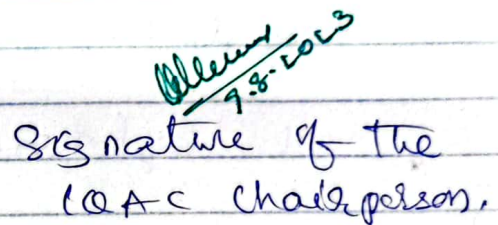 9.8.2023
Signature of the
IQAC Chairperson.